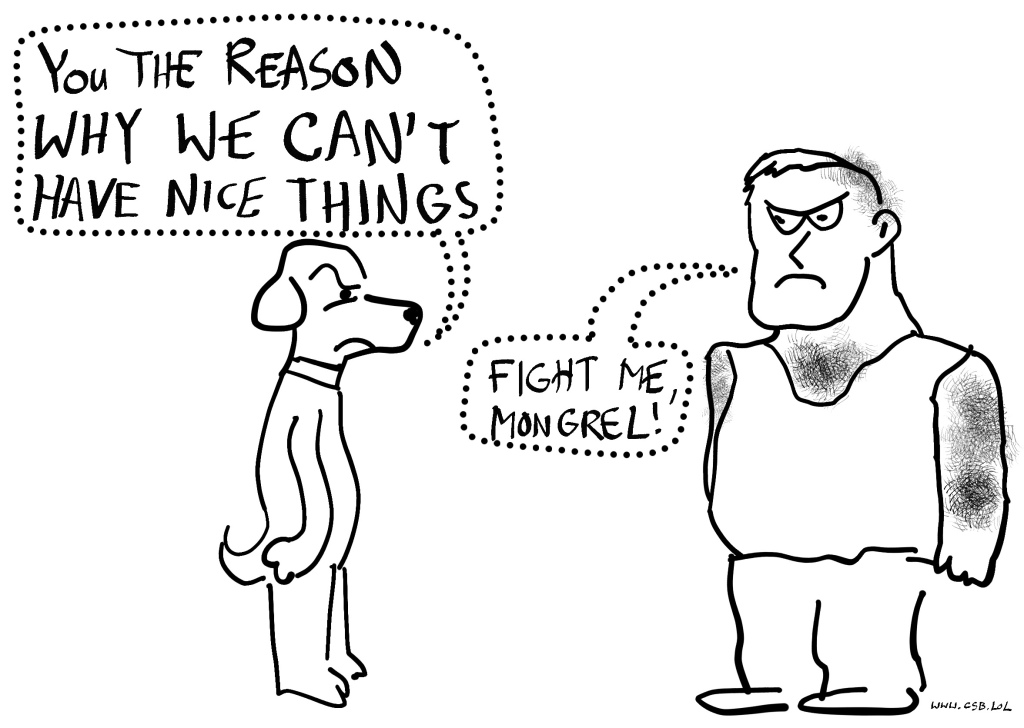 You THE REASON
WHY WE CAN'T
HAVE NICE THINGS
FIGHT ME,
MONGREL!
www.CSB.LOL